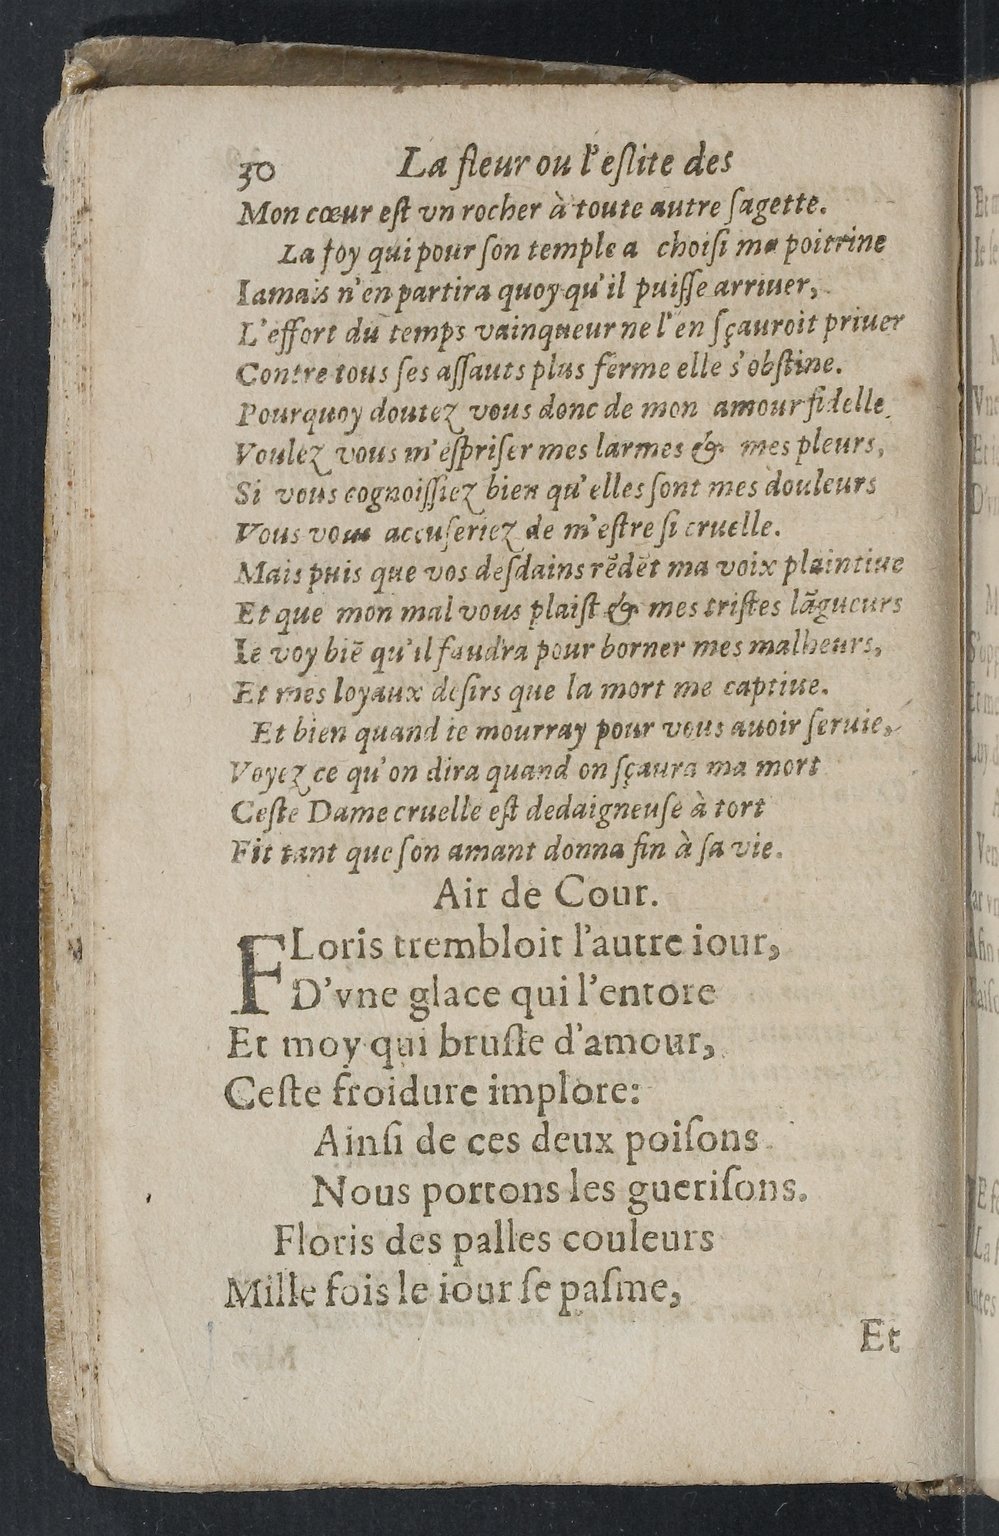 30 La fleur ou l'eſlite des
Mon cœur eſt vn rocher à toute autre ſagette.
La foy qui pour ſon temple a choiſi ma poitrine
Iamais n'en partira quoy qu'il puiſſe arriuer,
L'effort du temps vainqueur ne l'en ſçauroit priuer
Contre tous ſes aſſauts plus ferme elle s'obſtine.
Pourquoy doutez vous donc de mon amour fidelle,
Voulez vous m'eſpriſer mes larmes & mes pleurs,
Si vous cognoiſſiez bien qu'elles ſont mes douleurs
Vous vous accuſeriez de m'eſtre ſi cruelle.
Mais puis que vos deſdains rẽdẽt ma voix plaintiue
Et que mon mal vous plaiſt & mes triſtes lãgueurs
Ie voy biẽ qu'il faudra pour borner mes malheurs,
Et mes loyaux deſirs que la mort me captiue.
Et bien quand ie mourray pour vous auoir ſeruie,
Voyez ce qu'on dira quand on ſçaura ma mort
Ceſte Dame cruelle eſt dedaigneuſe à tort
Fit tant que ſon amant donna fin à ſa vie.
Air de Cour.
FLoris trembloit l'autre iour,
D'vne glace qui l'entore
Et moy qui bruſle d'amour,
Ceſte froidure implore:
Ainſi de ces deux poiſons
Nous portons les gueriſons.
Floris des palles couleurs
Mille fois le iour ſe paſme,
Et